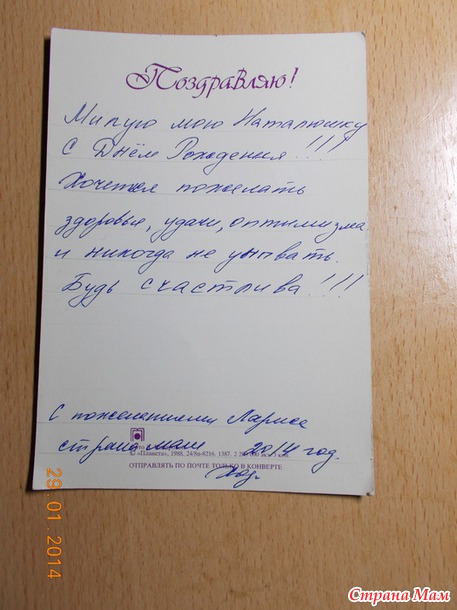 Поздравляю!
Милую мою Наталюшку
С Днём Рождения!!!
Хочется пожелать
здоровья, удачи, оптимизма
и никогда не унывать.
Будь счастлива!!!
С пожеланиями Лариса
страна мам 2014 год.
© «Планета», 1988. 24/8н-8216. 1387. 2
ОТПРАВЛЯТЬ ПО ПОЧТЕ ТОЛЬКО В КОНВЕРТЕ
29.01.2014
Страна Мам